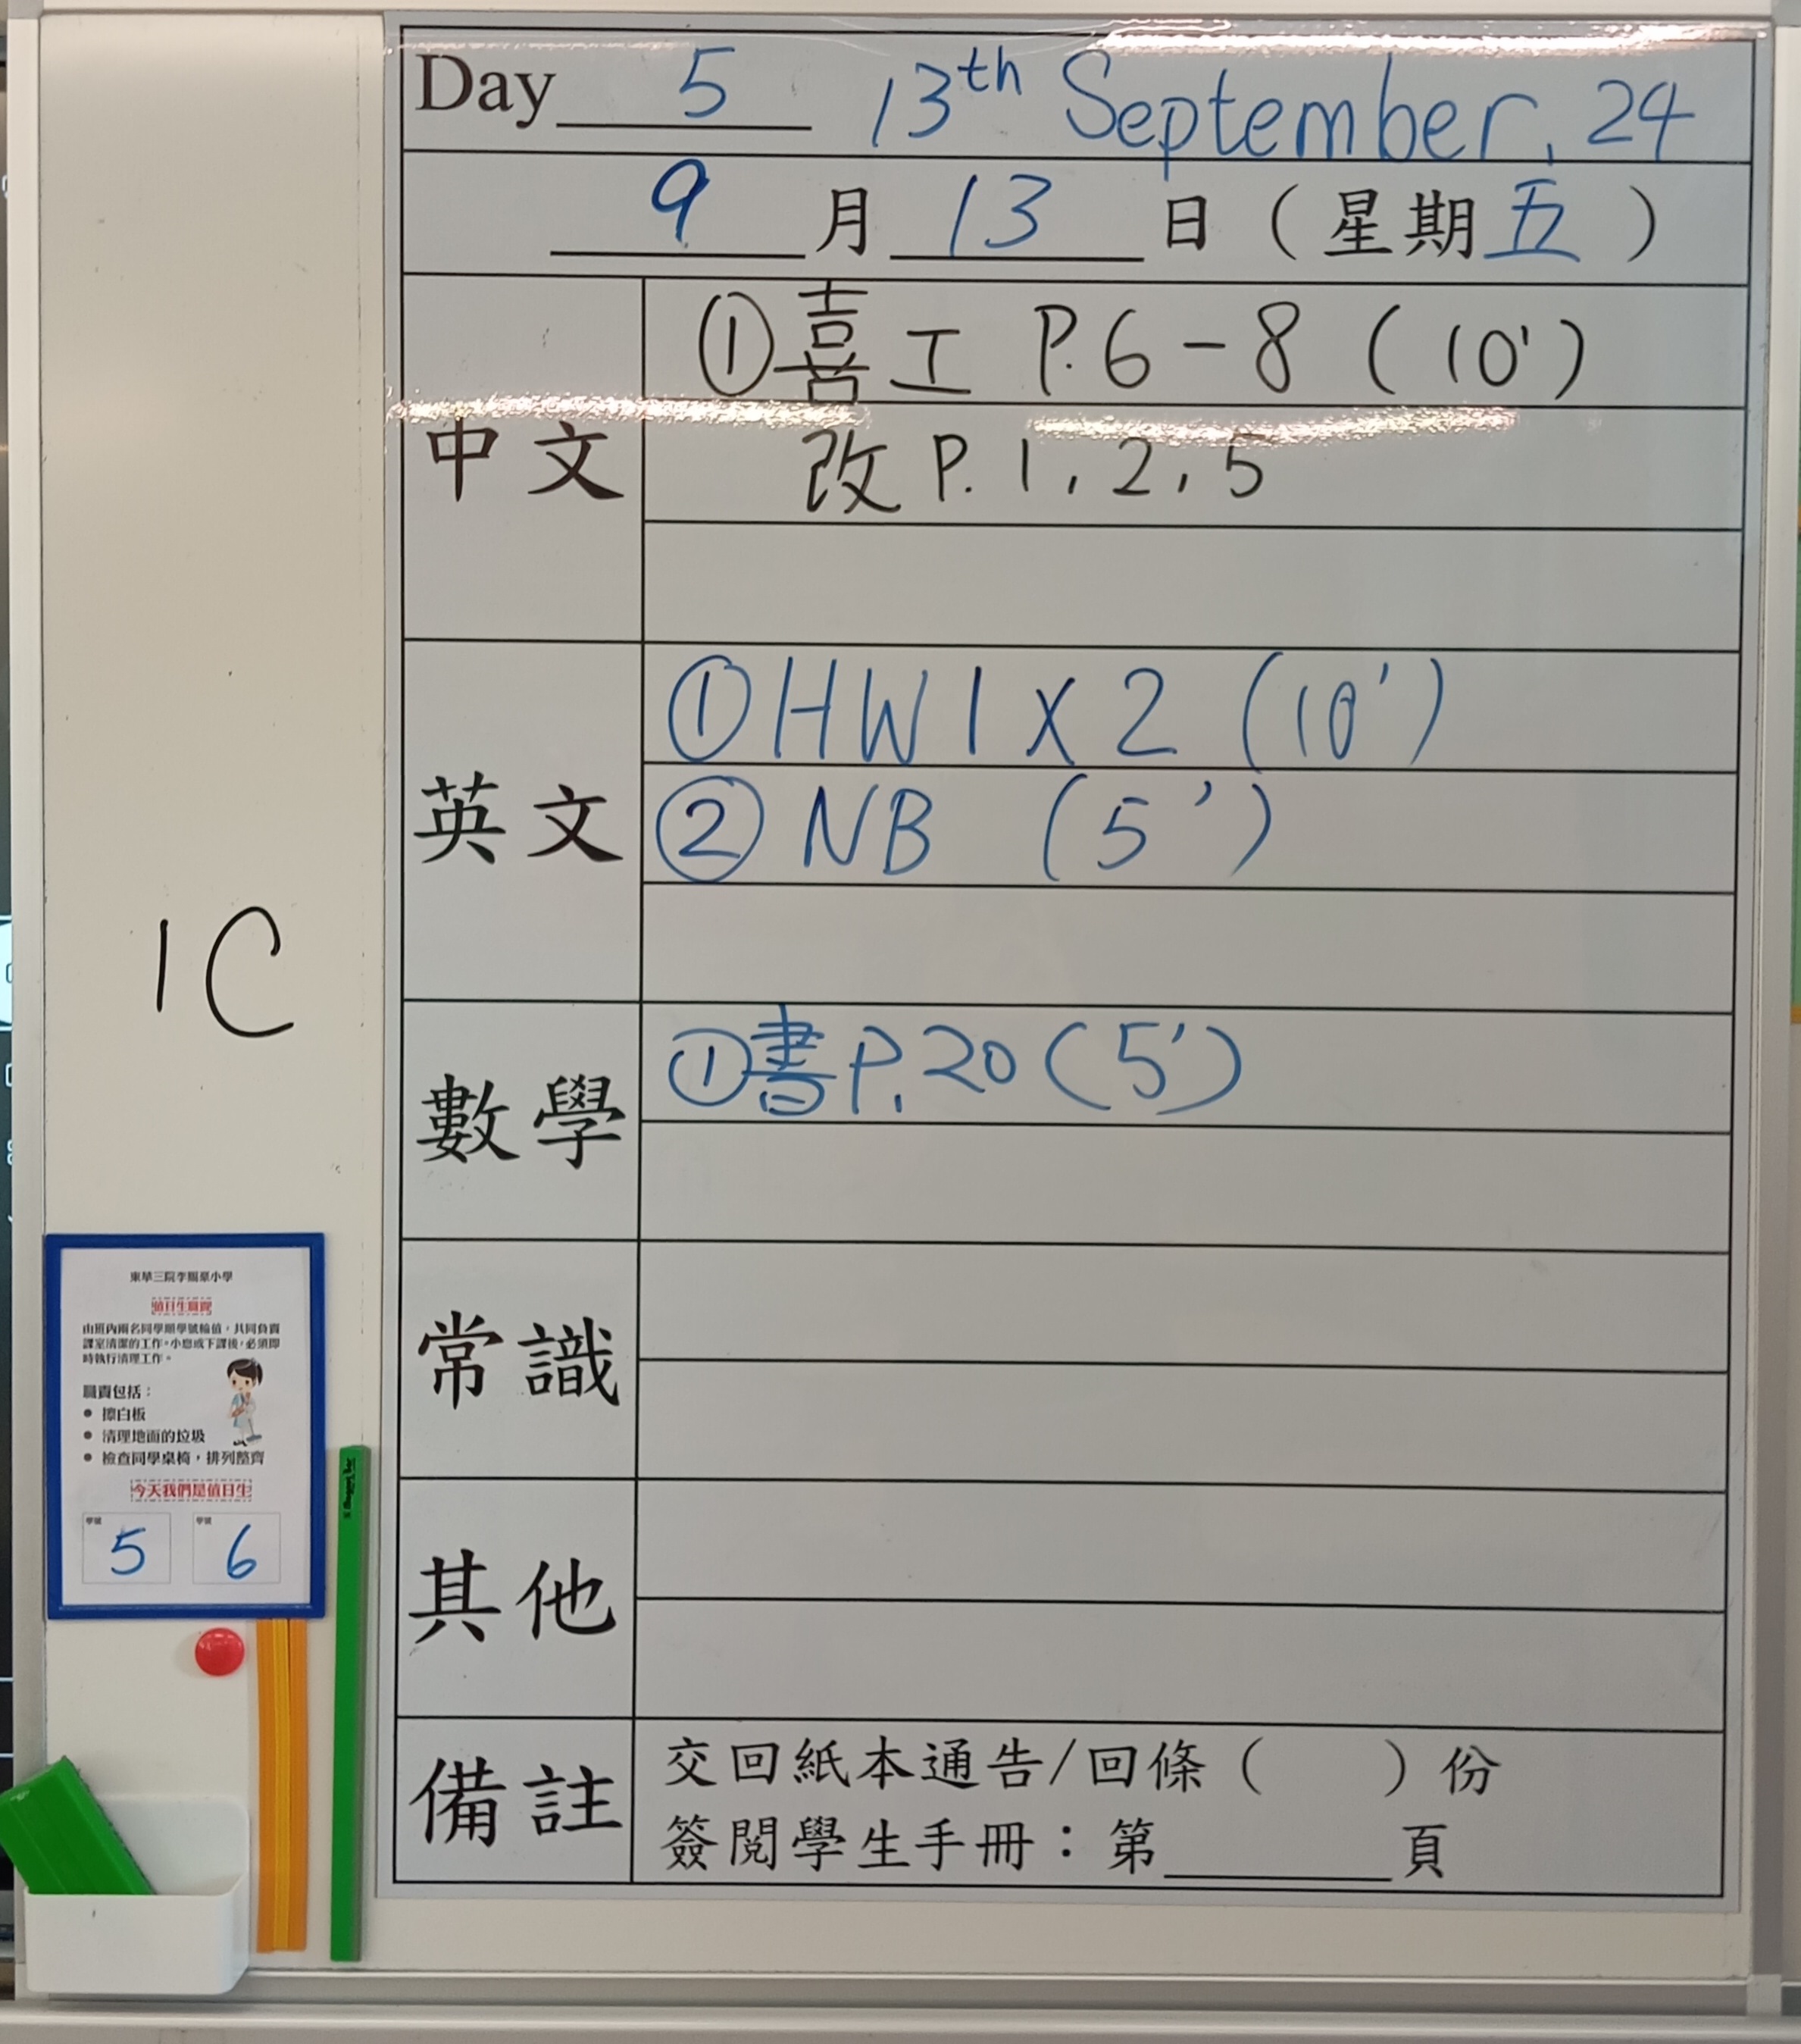 Day 5 13th September, 24
9月13日（星期五）
中文
①喜工 P.6-8 (10')
改 P.1,2,5
英文
①HW1X2 (10')
②NB (5')
數學
①書P.20(5')
常識
其他
備註
交回紙本通告/回條（ ）份
簽閱學生手冊：第______頁
1C
值日生職責
由班內兩名同學順學號輪值，共同負責
課室清潔的工作。小息或下課後，必須即
時執行清理工作。
職責包括：
● 擦白板
● 清理地面的垃圾
● 檢查同學桌椅，排列整齊
今天我們是值日生
學號 學號
5 6